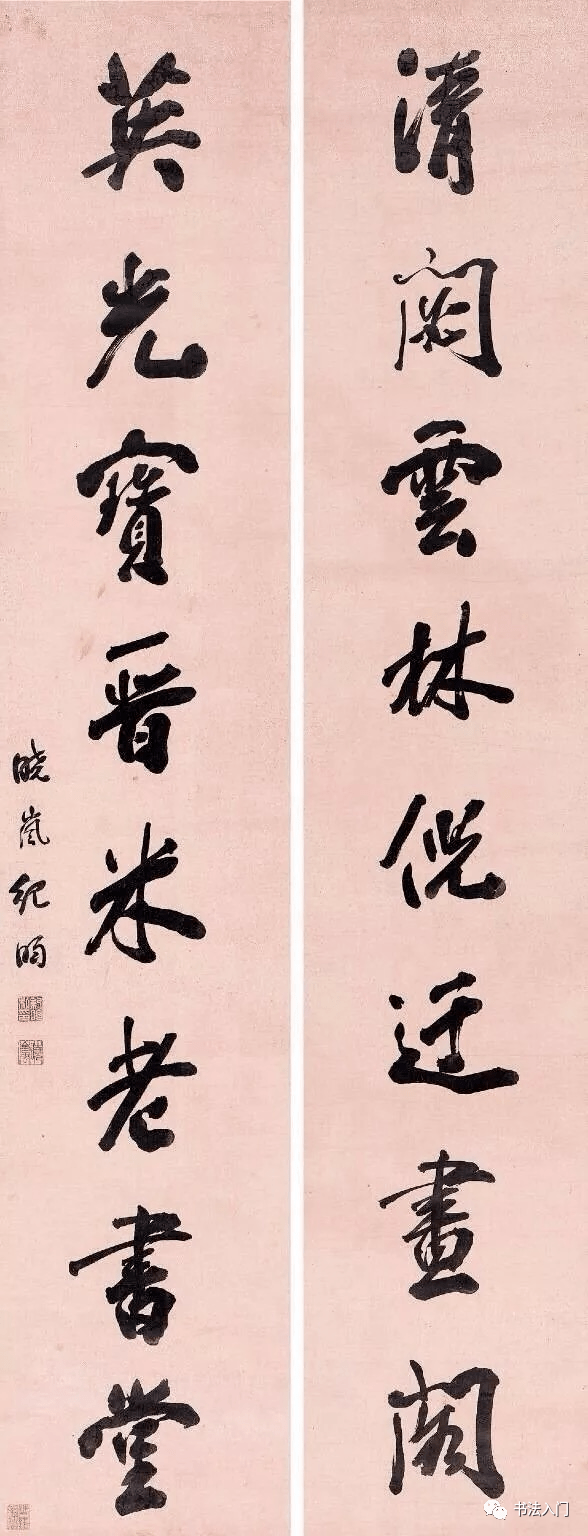 清閟雲林倪迂畫閣
英光寶晉米老書堂
曉嵐紀昀
书法入门